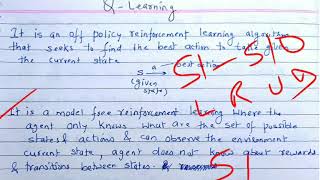 Q-Learning
It is an off policy reinforcement learning algorithm
that seeks to find the best action to take given
the current state
S a best action
(given state)
S1-S10
L R U D
It is a model free reinforcement learning where the
agent only knows what are the set of possible
states & actions & can observe the environment
current state, agent does not know about rewards
& transitions between states.
S1